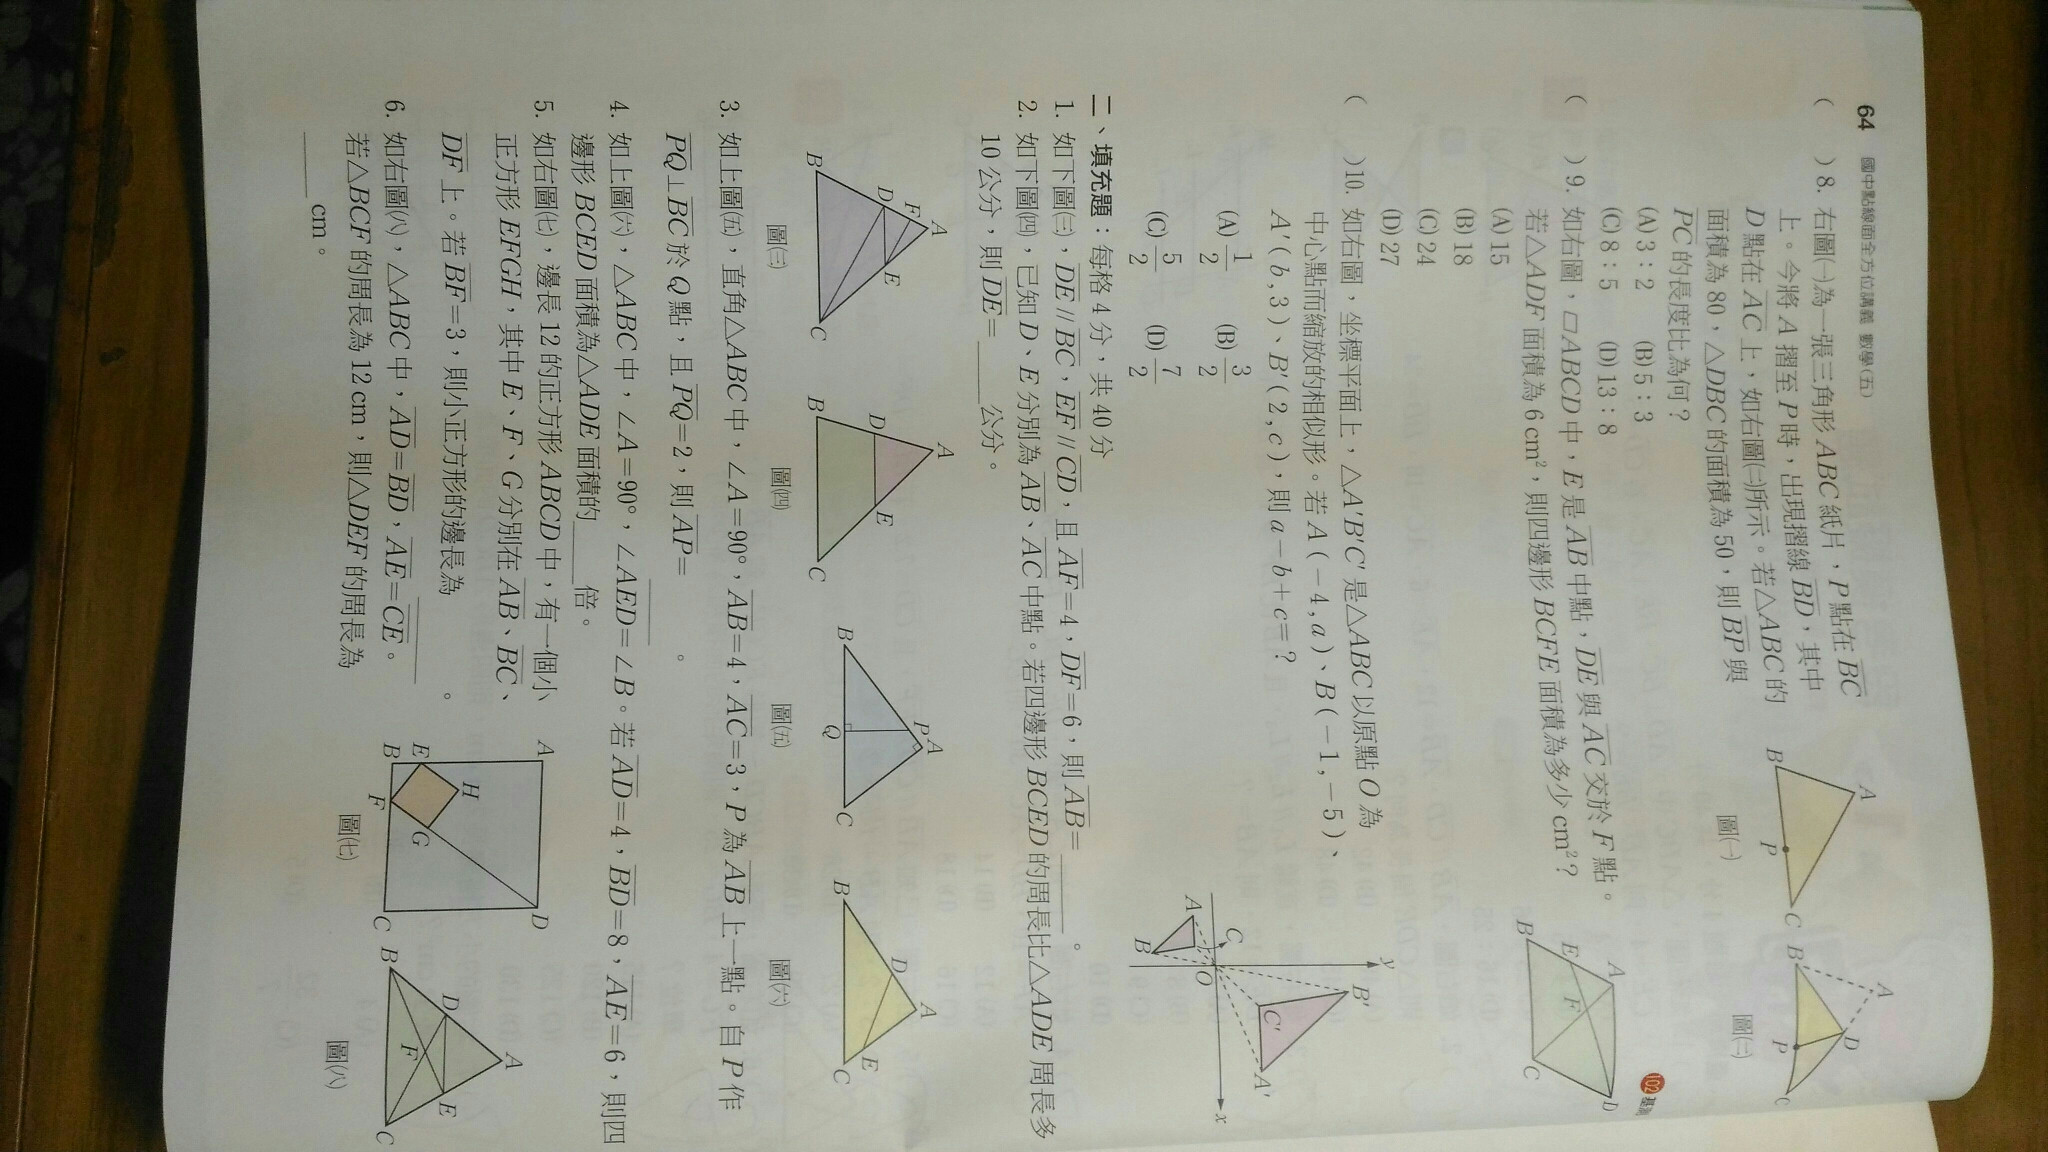 64 國中點線面全方位講義 數學(五)
( )8. 右圖㈠為一張三角形ABC紙片,P點在BC
上。今將A摺至P時,出現摺線BD,其中
D點在AC上,如右圖㈡所示。若△ABC的
面積為80,△DBC的面積為50,則BP與
PC的長度比為何?
(A)3:2 (B)5:3
(C)8:5 (D)13:8
A
B
P
C
圖㈠
A
B
D
P
C
圖㈡
102基測
( )9. 如右圖,□ABCD中,E是AB中點,DE與AC交於F點。
若△ADF面積為6cm²,則四邊形BCFE面積為多少cm²?
(A)15
(B)18
(C)24
(D)27
A
E
B
F
C
D
( )10. 如右圖,坐標平面上,△A'B'C'是△ABC以原點O為
中心點而縮放的相似形。若A(-4,a)、B(-1,-5)、
A'(b,3)、B'(2,c),則a-b+c=?
(A)1/2 (B)3/2
(C)5/2 (D)7/2
y
B'
C'
A'
C
A
B
O
x
二、填充題:每格4分,共40分
1. 如下圖㈢,DE//BC,EF//CD,且AF=4,DF=6,則AB=____。
2. 如下圖㈣,已知D、E分別為AB、AC中點。若四邊形BCED的周長比△ADE周長多
10公分,則DE=____公分。
A
F
D
E
B
C
圖㈢
A
D
E
B
C
圖㈣
A
P
B
Q
C
圖㈤
A
D
E
B
C
圖㈥
3. 如上圖㈤,直角△ABC中,∠A=90°,AB=4,AC=3,P為AB上一點。自P作
PQ⊥BC於Q點,且PQ=2,則AP=____。
4. 如上圖㈥,△ABC中,∠A=90°,∠AED=∠B。若AD=4,BD=8,AE=6,則四
邊形BCED面積為△ADE面積的____倍。
5. 如右圖㈦,邊長12的正方形ABCD中,有一個小
正方形EFGH,其中E、F、G分別在AB、BC、
DF上。若BF=3,則小正方形的邊長為____。
6. 如右圖㈧,△ABC中,AD=BD,AE=CE。
若△BCF的周長為12cm,則△DEF的周長為
____cm。
A
D
H
E
G
B
F
C
圖㈦
A
D
E
F
B
C
圖㈧